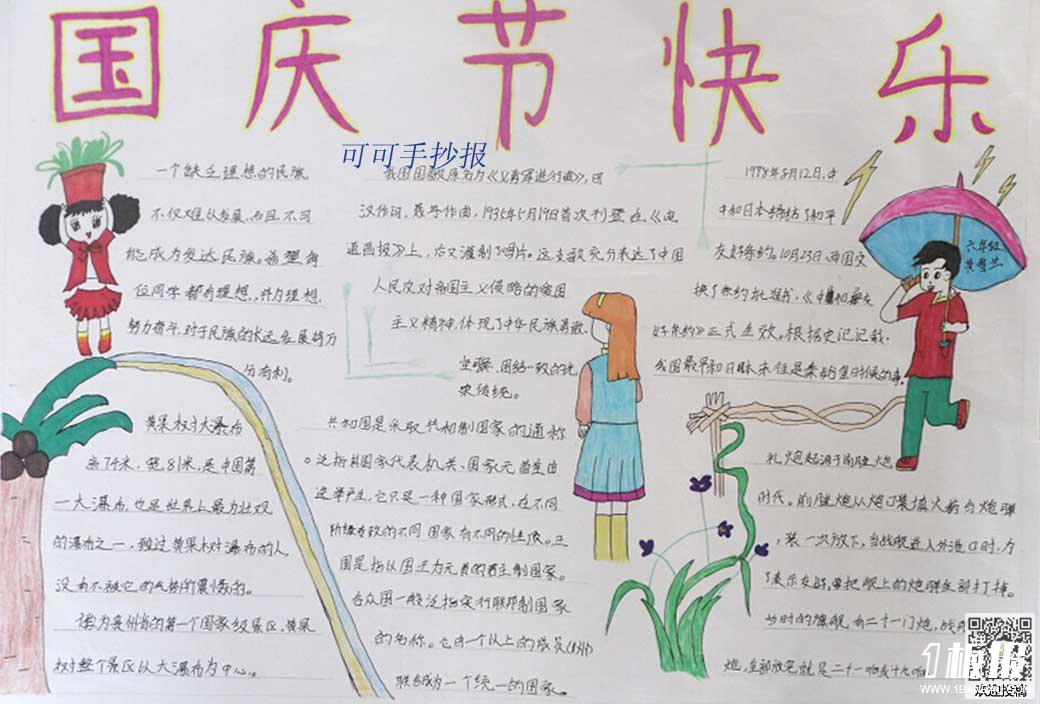 国庆节快乐
可可手抄报
一个缺乏理想的民族
不仅难以发展,而且不可
能成为发达民族。希望每
位同学都有理想,并为理想,
努力奋斗,对于民族的长远发展将万
分有利。
黄果树大瀑布
高74米,宽81米,是中国第
一大瀑布,也是世界上最为壮观
的瀑布之一,到过黄果树瀑布的人,
没有不被它的气势所震憾的。
诶为贵州省的第一个国家级景区,黄果
树整个景区以大瀑布为中心。
我国国歌原名为《义勇军进行曲》,田
汉作词,聂耳作曲,1935年5月19日首次刊登在《电
通画报》上,后又灌制了唱片。这支歌充分表达了中国
人民反对帝国主义侵略的爱国
主义精神,体现了中华民族勇敢、
坚强、团结一致的优
荣传统。
共和国是采取共和制国家的通称
。泛指其国家代表机关、国家元首是由
选举产生,它只是一种国家形式,在不同
阶级专政的不同国家有不同的性质。王
国是指以国王为元首的君主制国家。
合众国一般泛指实行联邦制国家
的名称。它由一个以上的成员(州)
联合成为一个统一的国家。
1978年8月12日,中
中和日本缔结了和平
友好条约。10月23日,两国交
换了条约批准书,《中日和平友
好条约》正式生效。根据史记记载,
我国最早和日本来往是秦始皇时候的事。
六年级
礼炮起源于前膛炮
时代。前膛炮从炮口装填火药与炮弹
,装一次放下,当战舰进入外港口时,为
了表示友好,要把舰上的炮弹全部打掉。
当时的旗舰,有二十一门炮,战
炮,全部放完就是二十一响或十九响
1级报
WWW.
欢迎投稿